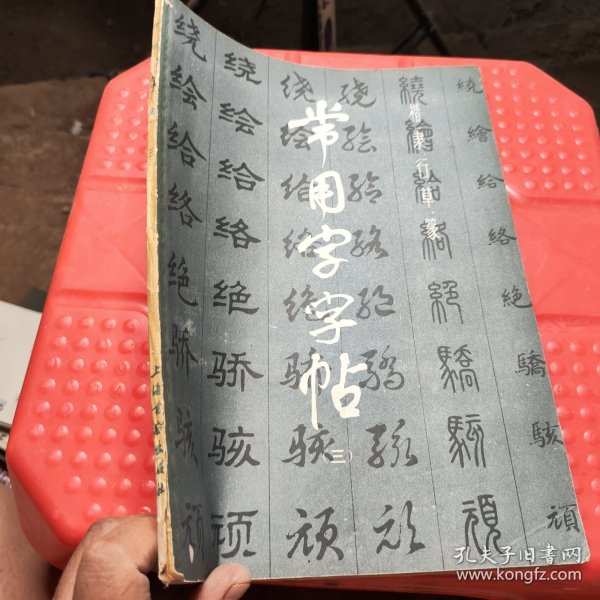 常用字字帖
(三)
楷隶行草篆
绕绘给络绝骄骇顽
绕绘给络绝骄骇顽
绕绘给络绝骄骇顽
绕绘给络绝骄骇顽
繞繪給絡絕驕駭頑
繞繪給絡絶驕駭頑
上海书画出版社
孔夫子旧书网
www.kongfz.com